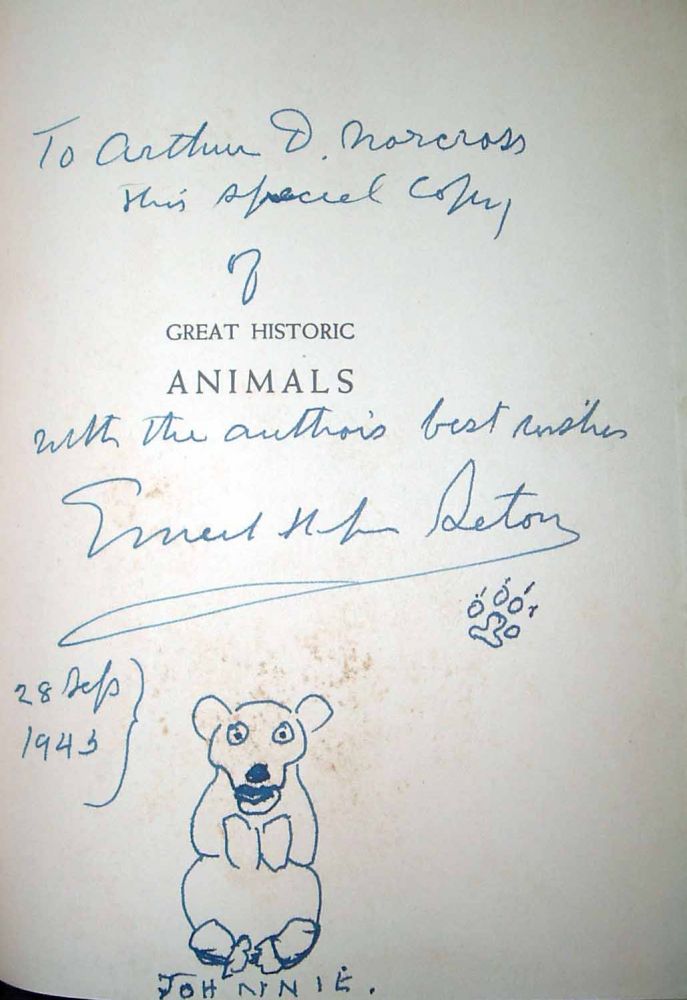 To Arthur D. Norcross
this special copy
of
GREAT HISTORIC
ANIMALS
with the author's best wishes
Ernest Thompson Seton
28 Sep
1943
JOHNNIE.